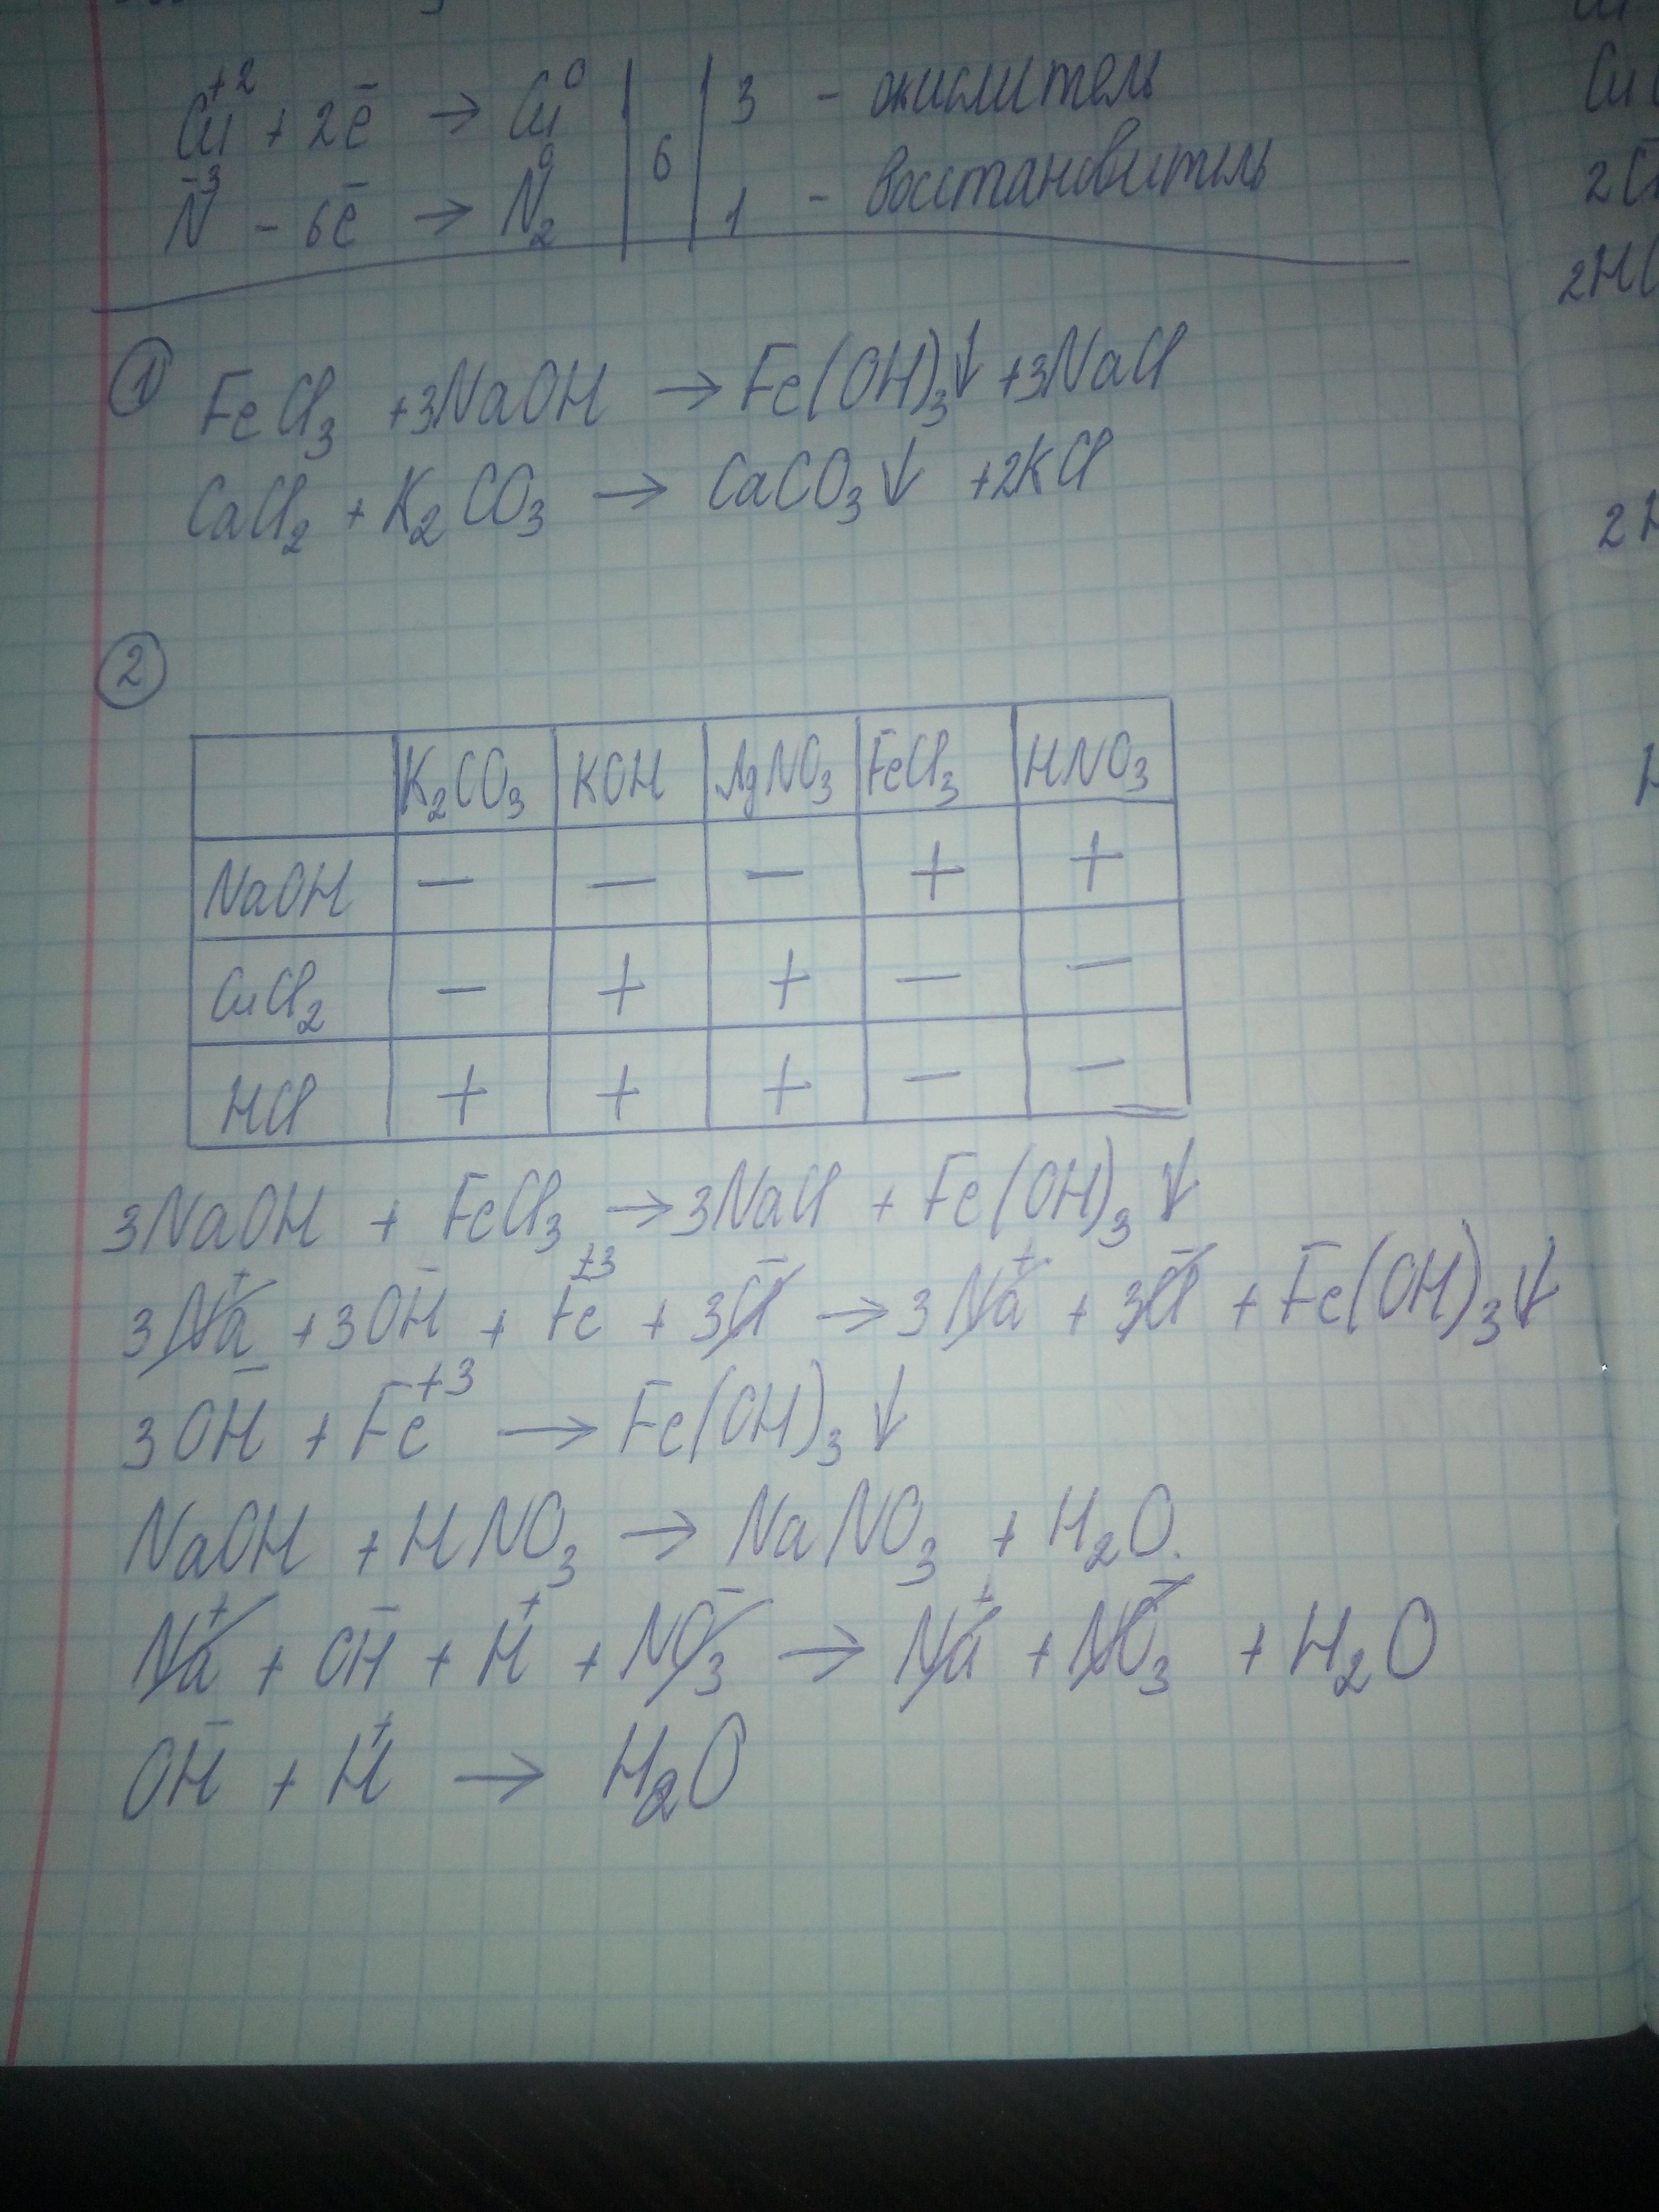 Cu⁺² + 2ē → Cu⁰ | 6 | 3 - окислитель
N⁻³ - 6ē → N₂⁰ | | 1 - восстановитель
① FeCl₃ + 3NaOH → Fe(OH)₃↓ + 3NaCl
CaCl₂ + K₂CO₃ → CaCO₃↓ + 2KCl
②
K₂CO₃ | KOH | AgNO₃ | FeCl₃ | HNO₃
NaOH | − | − | − | + | +
CuCl₂ | − | + | + | − | −
HCl | + | + | + | − | −
3NaOH + FeCl₃ → 3NaCl + Fe(OH)₃↓
3Na⁺ + 3OH⁻ + Fe⁺³ + 3Cl⁻ → 3Na⁺ + 3Cl⁻ + Fe(OH)₃↓
3OH⁻ + Fe⁺³ → Fe(OH)₃↓
NaOH + HNO₃ → NaNO₃ + H₂O.
Na⁺ + OH⁻ + H⁺ + NO₃⁻ → Na⁺ + NO₃⁻ + H₂O
OH⁻ + H⁺ → H₂O